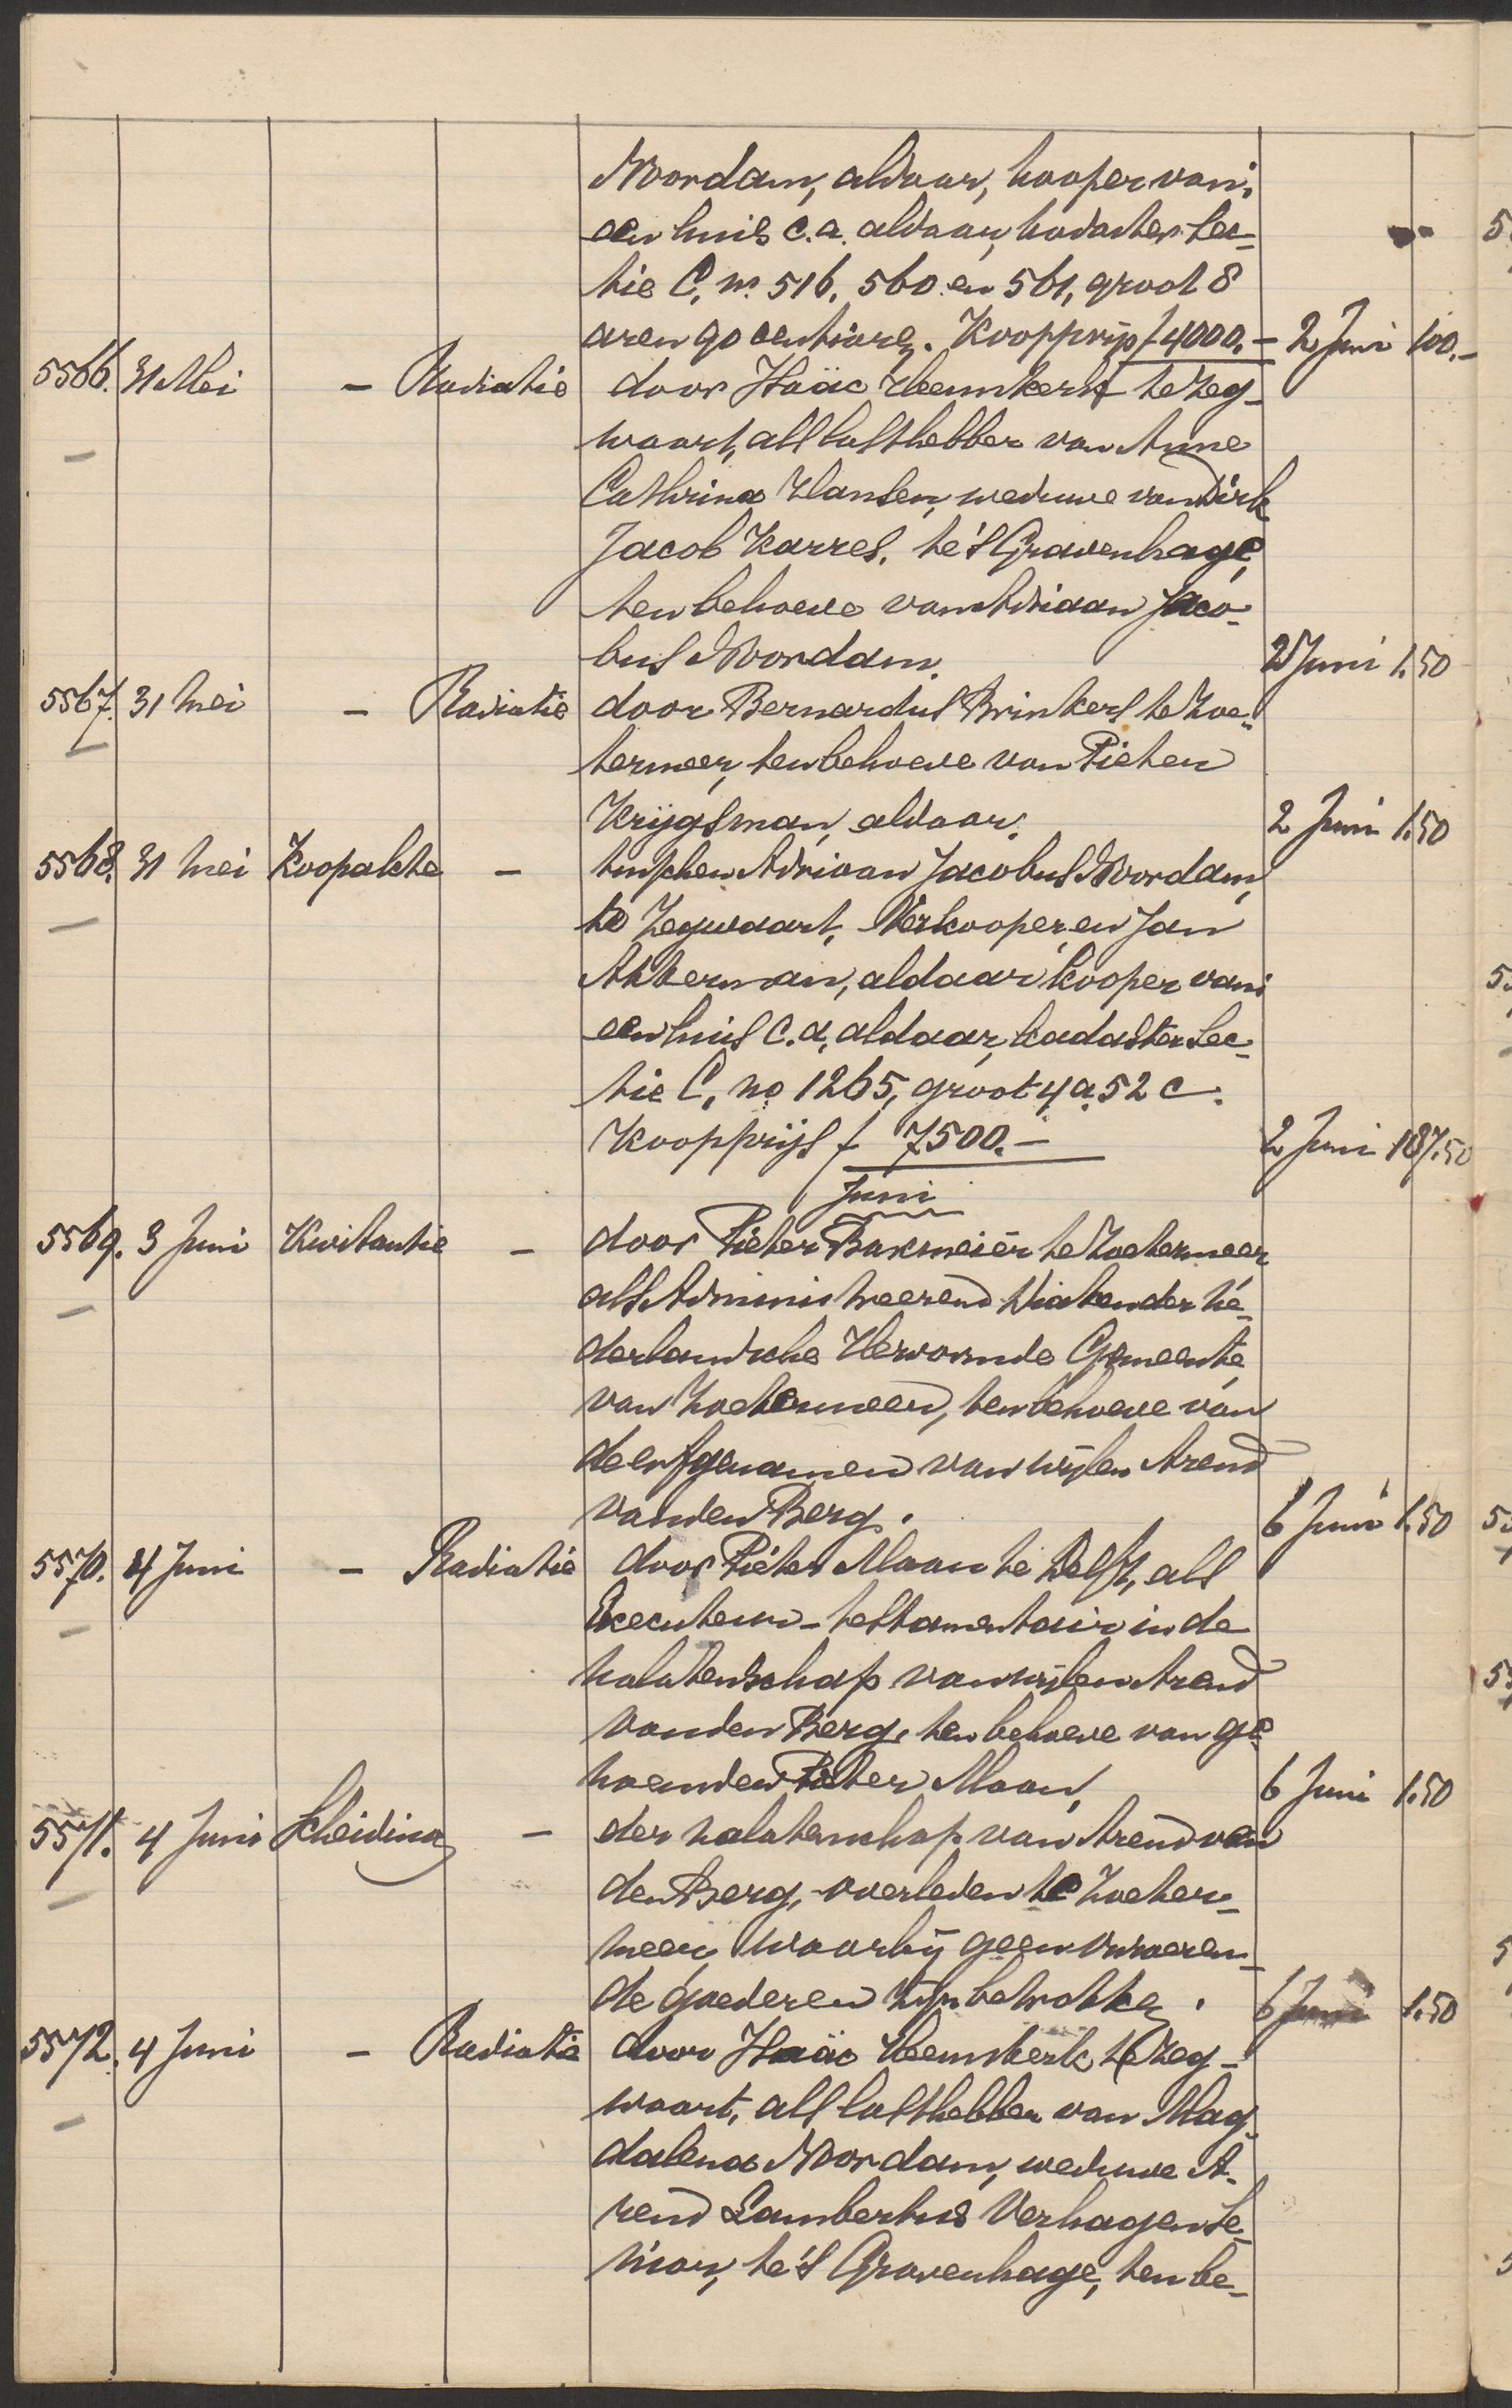 Noordam, aldaar, kooper van:
een huis c.a. aldaar, kadaster Sec-
tie C, no. 516, 560 en 561, groot 8
aren 90 centiare. Koopprijs f 4000.- 2 Juni 100.-
5566. 31 Mei - Radiatie door Isaäc Heemskerk te Zeg-
waart, als lasthebber van Anne
Cathrina Hansen, weduwe van Dirk
Jacob Karres, te 's Gravenhage,
ten behoeve van Adriaan Jaco-
bus Noordam. 2 Juni 1.50
5567. 31 Mei - Radiatie door Bernardus Brinkers te Zoe-
termeer, ten behoeve van Pieter
Krijgsman, aldaar. 2 Juni 1.50
5568. 31 Mei Koopakte - tusschen Adriaan Jacobus Noordam,
te Zegwaart, Verkooper, en Jan
Akkerman, aldaar kooper van:
een huis c.a. aldaar, kadaster Sec-
tie C, no 1265, groot 4 a. 52 c.
Koopprijs f 7500.- 2 Juni 187.50
Juni
5569. 3 Juni Kwitantie - door Pieter Boxmeier te Zoetermeer
als Administreerend Diaken der Ne-
derlandsche Hervormde Gemeente
van Zoetermeer, ten behoeve van
de erfgenamen van wijlen Arend
van den Berg. 6 Juni 1.50
5570. 4 Juni - Radiatie door Pieter Maan te Delft, als
Executeur-testamentair in de
nalatenschap van wijlen Arend
van den Berg, ten behoeve van ge
noemden Pieter Maan, 6 Juni 1.50
5571. 4 Juni Scheiding - der nalatenschap van Arend van
den Berg, overleden te Zoeter-
meer, waarbij geen onroeren-
de goederen zijn betrokken. 6 Juni 1.50
5572. 4 Juni - Radiatie door Isaäc Heemskerk te Zeg-
waart, als lasthebber van Mag-
dalena Noordam, weduwe A-
rend Lambertus Verhagen Se-
nior, te 's Gravenhage, ten be-